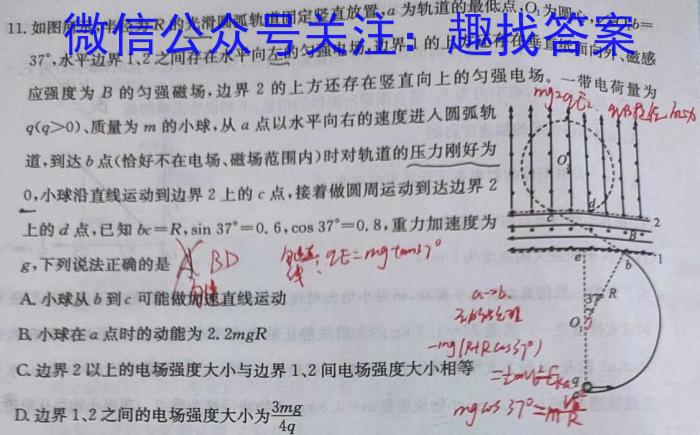 11. 如图所示,半径为R的光滑圆弧轨道固定竖直放置,a为轨道的最低点,O₁为圆心,
微信公众号关注：趣找答案
37°,水平边界1、2之间存在水平向左的匀强电场,边界1的上方还存在垂直纸面向外、磁感
应强度为B的匀强磁场,边界2的上方还存在竖直向上的匀强电场。一带电荷量为
q(q>0)、质量为m的小球,从a点以水平向右的速度进入圆弧轨
道,到达b点(恰好不在电场、磁场范围内)时对轨道的压力刚好为
0,小球沿直线运动到边界2上的c点,接着做圆周运动到达边界2
上的d点,已知bc=R,sin 37°=0.6,cos 37°=0.8,重力加速度为
g,下列说法正确的是
BD
qE=mgtan37°
A. 小球从b到c可能做加速直线运动
B. 小球在a点时的动能为2.2mgR
C. 边界2以上的电场强度大小与边界1、2间电场强度大小相等
D. 边界1、2之间的电场强度大小为3mg/4q
mg=qE
O
c
d
2
B
1
e
b
37°
R
O₁
a
a→b
-mg(R+Rcos37°)
mgcos37°=m